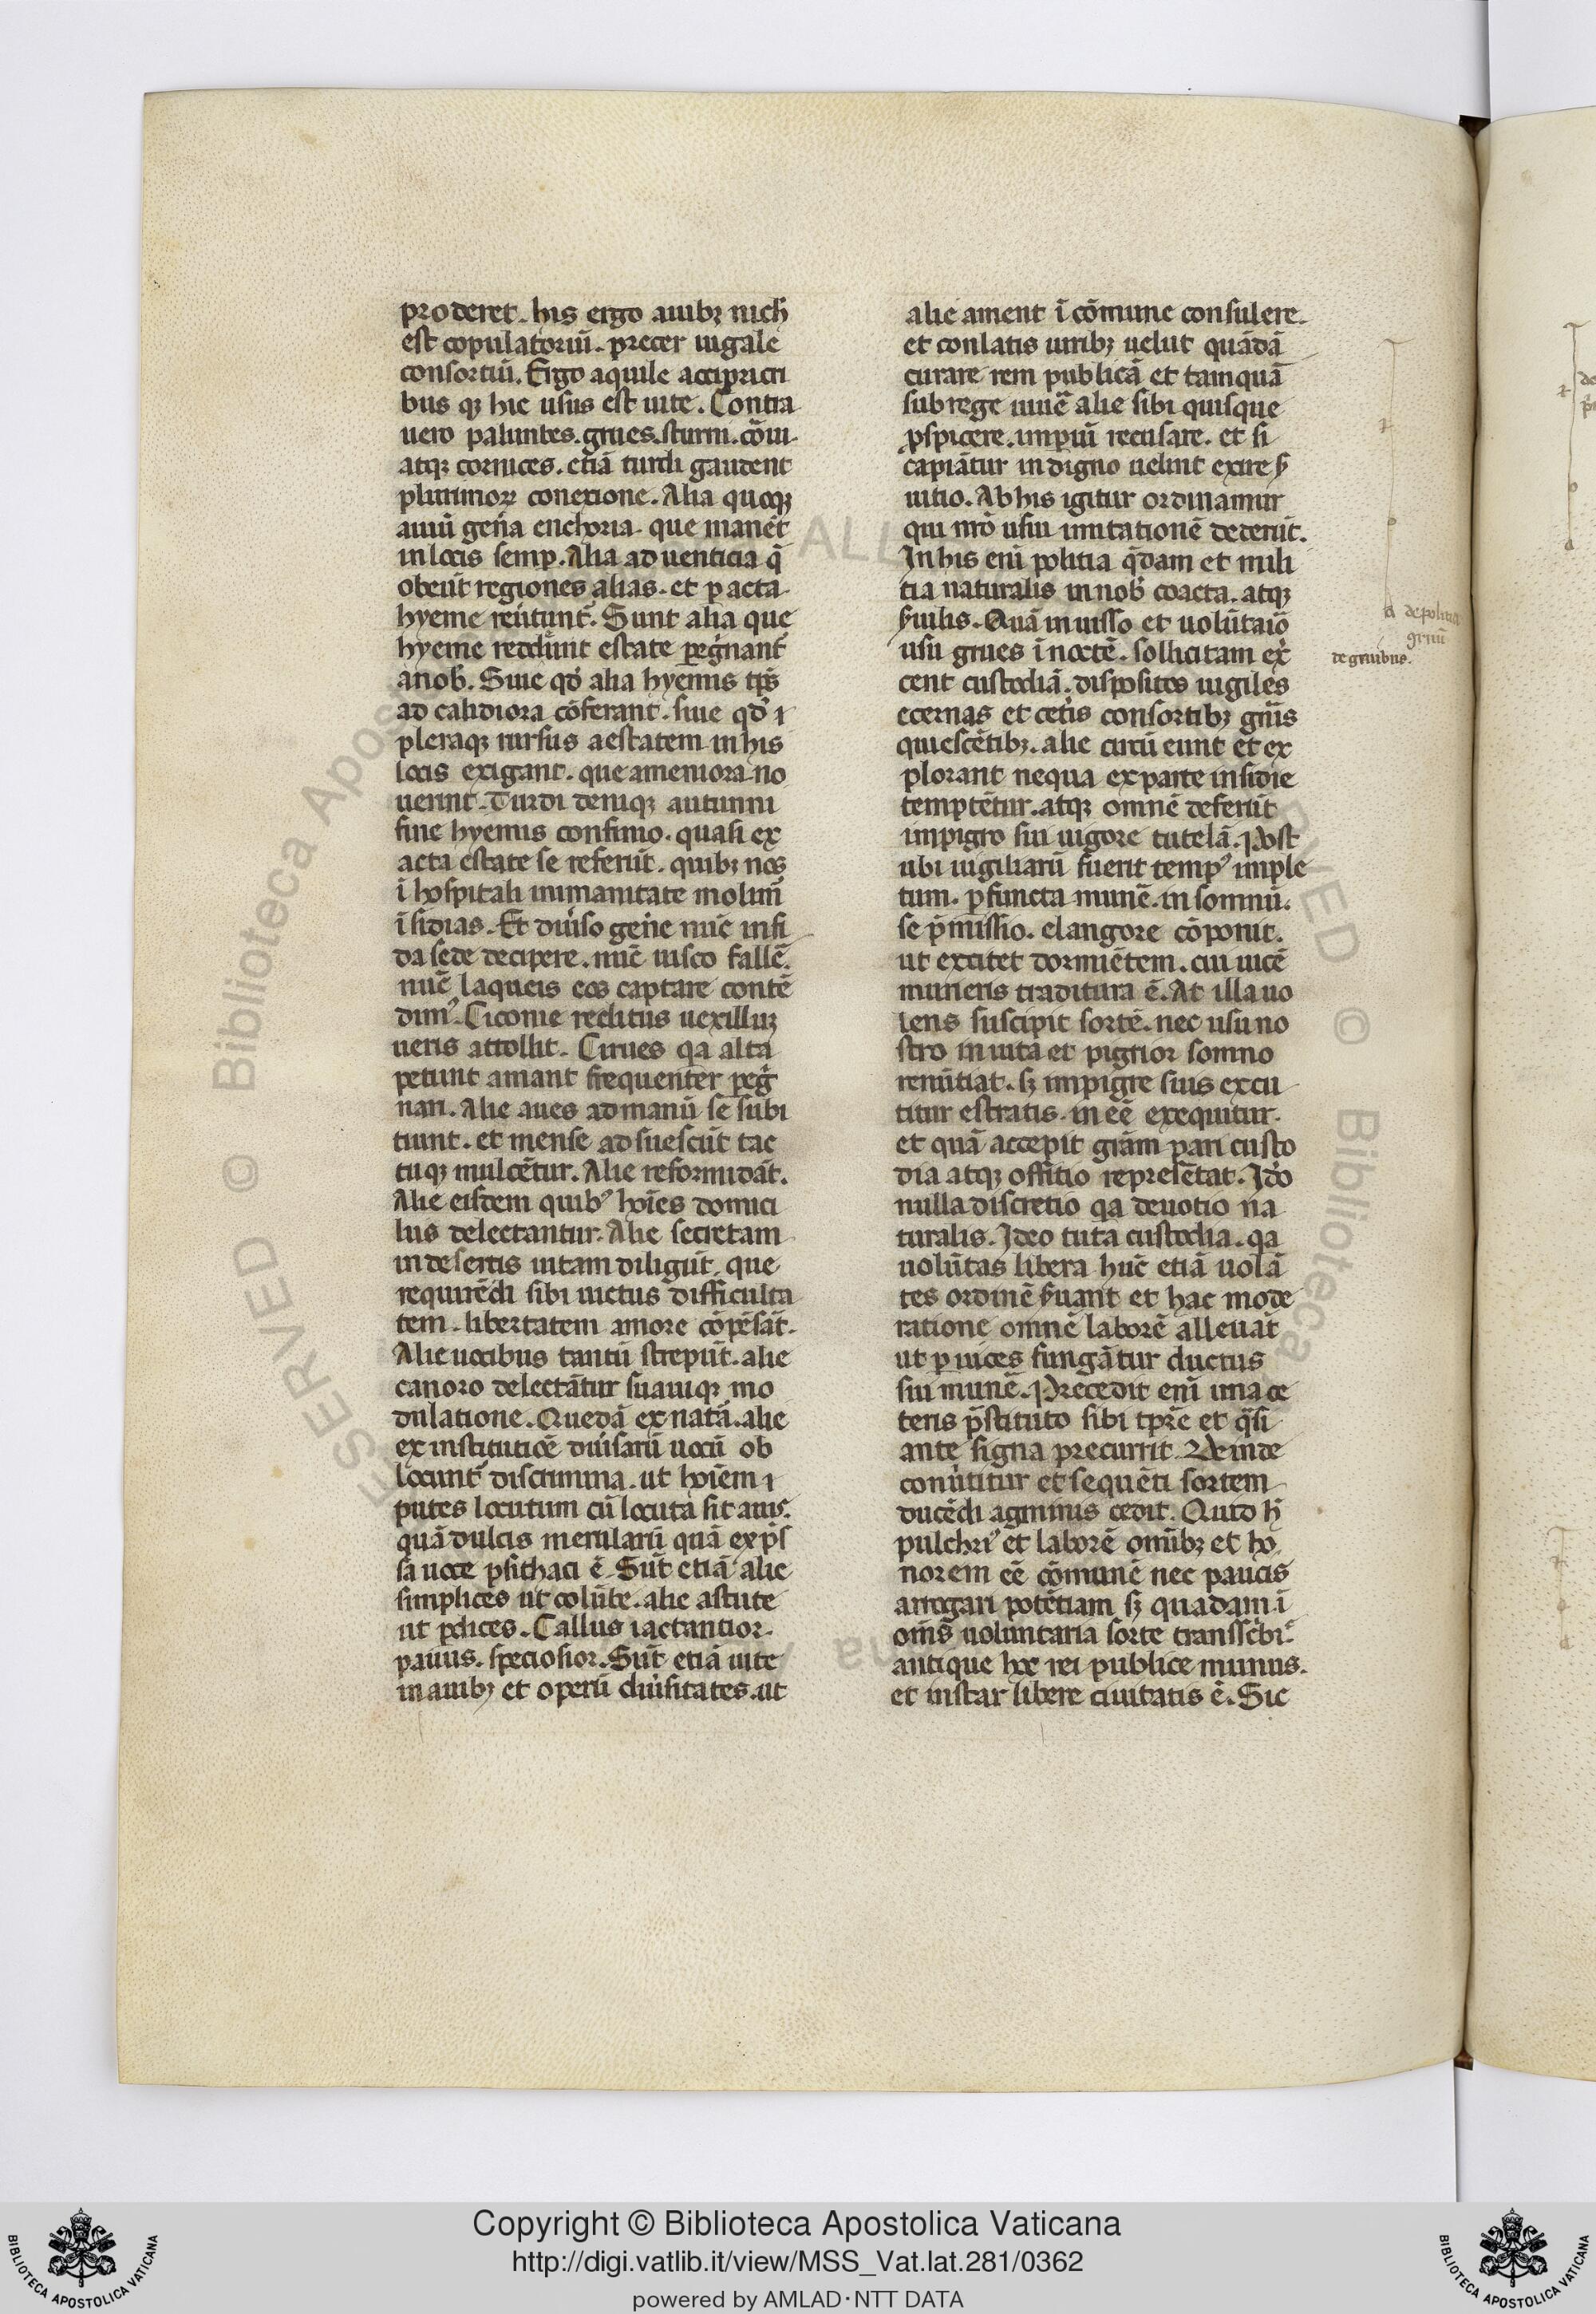 proderet. his ergo auibꝫ nich̄
est copulatoriū. preter iugale
consortiū. Ergo aquile accipitri
bus qꝫ hic usus est uite. Contra
uero palumbes. grues. sturni. corui.
atqꝫ cornices. etiā turdi gaudent
plurimoꝝ conexione. Alia quoqꝫ
auiū gen̄a enchoria. que manēt
in locis semꝑ. Alia aduenticia q̄
obeūt regiones alias. et ꝑacta
hyeme reūtunt᷒. Sunt alia que
hyeme reddūnt estate ꝑeg̍nant᷒
a nob̄. Siue qd̓ alia hyemis tp̄s
ad calidiora cōferant. siue qd̓ ı
pleraqꝫ rursus aestatem in his
locis exigant. que ameniora no
uerint. Turdi deniqꝫ autunni
fine hyemis confinio. quasi ex
acta estate se referūt. quibꝫ nos
ī hospitali inmanitate molim̄
īsidias. Et diu̍so gen̍e nūc infi
da sede decipere. nūc uisco fallē.
nūc laqueis eos captare contē
dim᷒. Ciconie reditus uexilluꝫ
ueris attollit. Grues qa alta
petunt amant frequenter ꝑeg̍
nari. Alie aues ad manū se subi
ciunt. et mense adsuescūt tac
tuqꝫ mulcētur. Alie reformidāt.
Alie eisdem quib᷒ hoı̄es domici
liis delectantur. Alie secretam
in desertis uitam diligūt. que
requirēdi sibi uictus difficulta
tem. libertatem amore cōpēsāt.
Alie uocibus tantū strepūt. alie
canoro delectātur suauiqꝫ mo
dulatione. Quedā ex natā. alie
ex institutiōe diu̍sarū uocū ob
locunt᷒ discrimina. ut hoı̄em ı
putes locutum cū locuta sit auis.
quā dulcis merularū quā exp̍s
sa uoce psithaci ē. Sūt etiā alie
simplices ut colūbe. alie astute
ut ꝑdices. Gallus iactantior.
pauus. speciosior. Sūt etiā uite
in auibꝫ et operū diu̍sitates. ut
alie ament ī cōmune consulere.
et conlatis uiribꝫ uelut quādā
curare rem publicā et tamquā
sub rege uiuē alie sibi quisque
ꝓspicere. impiū recusare. et si
capiātur indigno uelint exire ẜ
uitio. Ab his igitur ordinamur
qui nr̄o usui imitationē dederūt.
In his eni politia q̄dam et mili
tia naturalis in nob̄ coacta. atqꝫ
ẜuilis. Quā iniusso et uolūtaıō
usu grues ī noctē. sollicitam ex̍
cent custodiā. dispositos uigiles
cernas et cet̍is consortibꝫ gn̄is
quiescētibꝫ. alie circū eunt et ex
plorant nequa ex parte insidie
temptētur. atqꝫ omnē deferūt
impigro sui uigore tutelā. Post
ubi uigiliarū fuerit temp᷒ imple
tum. ꝑfuncta munē. in somnū.
se p̄misso. clangore cōponit.
ut excitet dormiētem. cui uicē
muneris traditura ē. At illa uo
lens suscipit sortē. nec usu no
stro inuita et pigrior somno
renūtiat. sꝫ impigre suis excu
titur estratis. inēē exequitur.
et quā accepit grām pari custo
dia atqꝫ offitio represētat. Idō
nulla discretio qa deuotio na
turalis. Ideo tuta custodia. qa
uolūtas libera hūc etiā uolā
tes ordinē ẜuant et hac mode
ratione omnē laborē alleuāt
ut ꝑ uices fungātur ductus
sui munē. Precedit eni una ce
teris p̄stituto sibi tpr̄e et q̄si
ante signa precurrit. Deinde
conu̍titur et sequēti sortem
ducēdi agminis cedit. Quid h̄
pulchri᷒ et laborē omībꝫ et ho
norem eē cōmunē nec paucis
arrogari potētiam sꝫ quadam ī
oms̄ uoluntaria sorte transsc̍bi.
antique hoc rei publice munus.
et instar libere ciuitatis ē. Sic
a de politia
gruū
de gruibus.
Copyright © Biblioteca Apostolica Vaticana
http://digi.vatlib.it/view/MSS_Vat.lat.281/0362
powered by AMLAD·NTT DATA
BIBLIOTECA APOSTOLICA VATICANA
BIBLIOTECA APOSTOLICA VATICANA